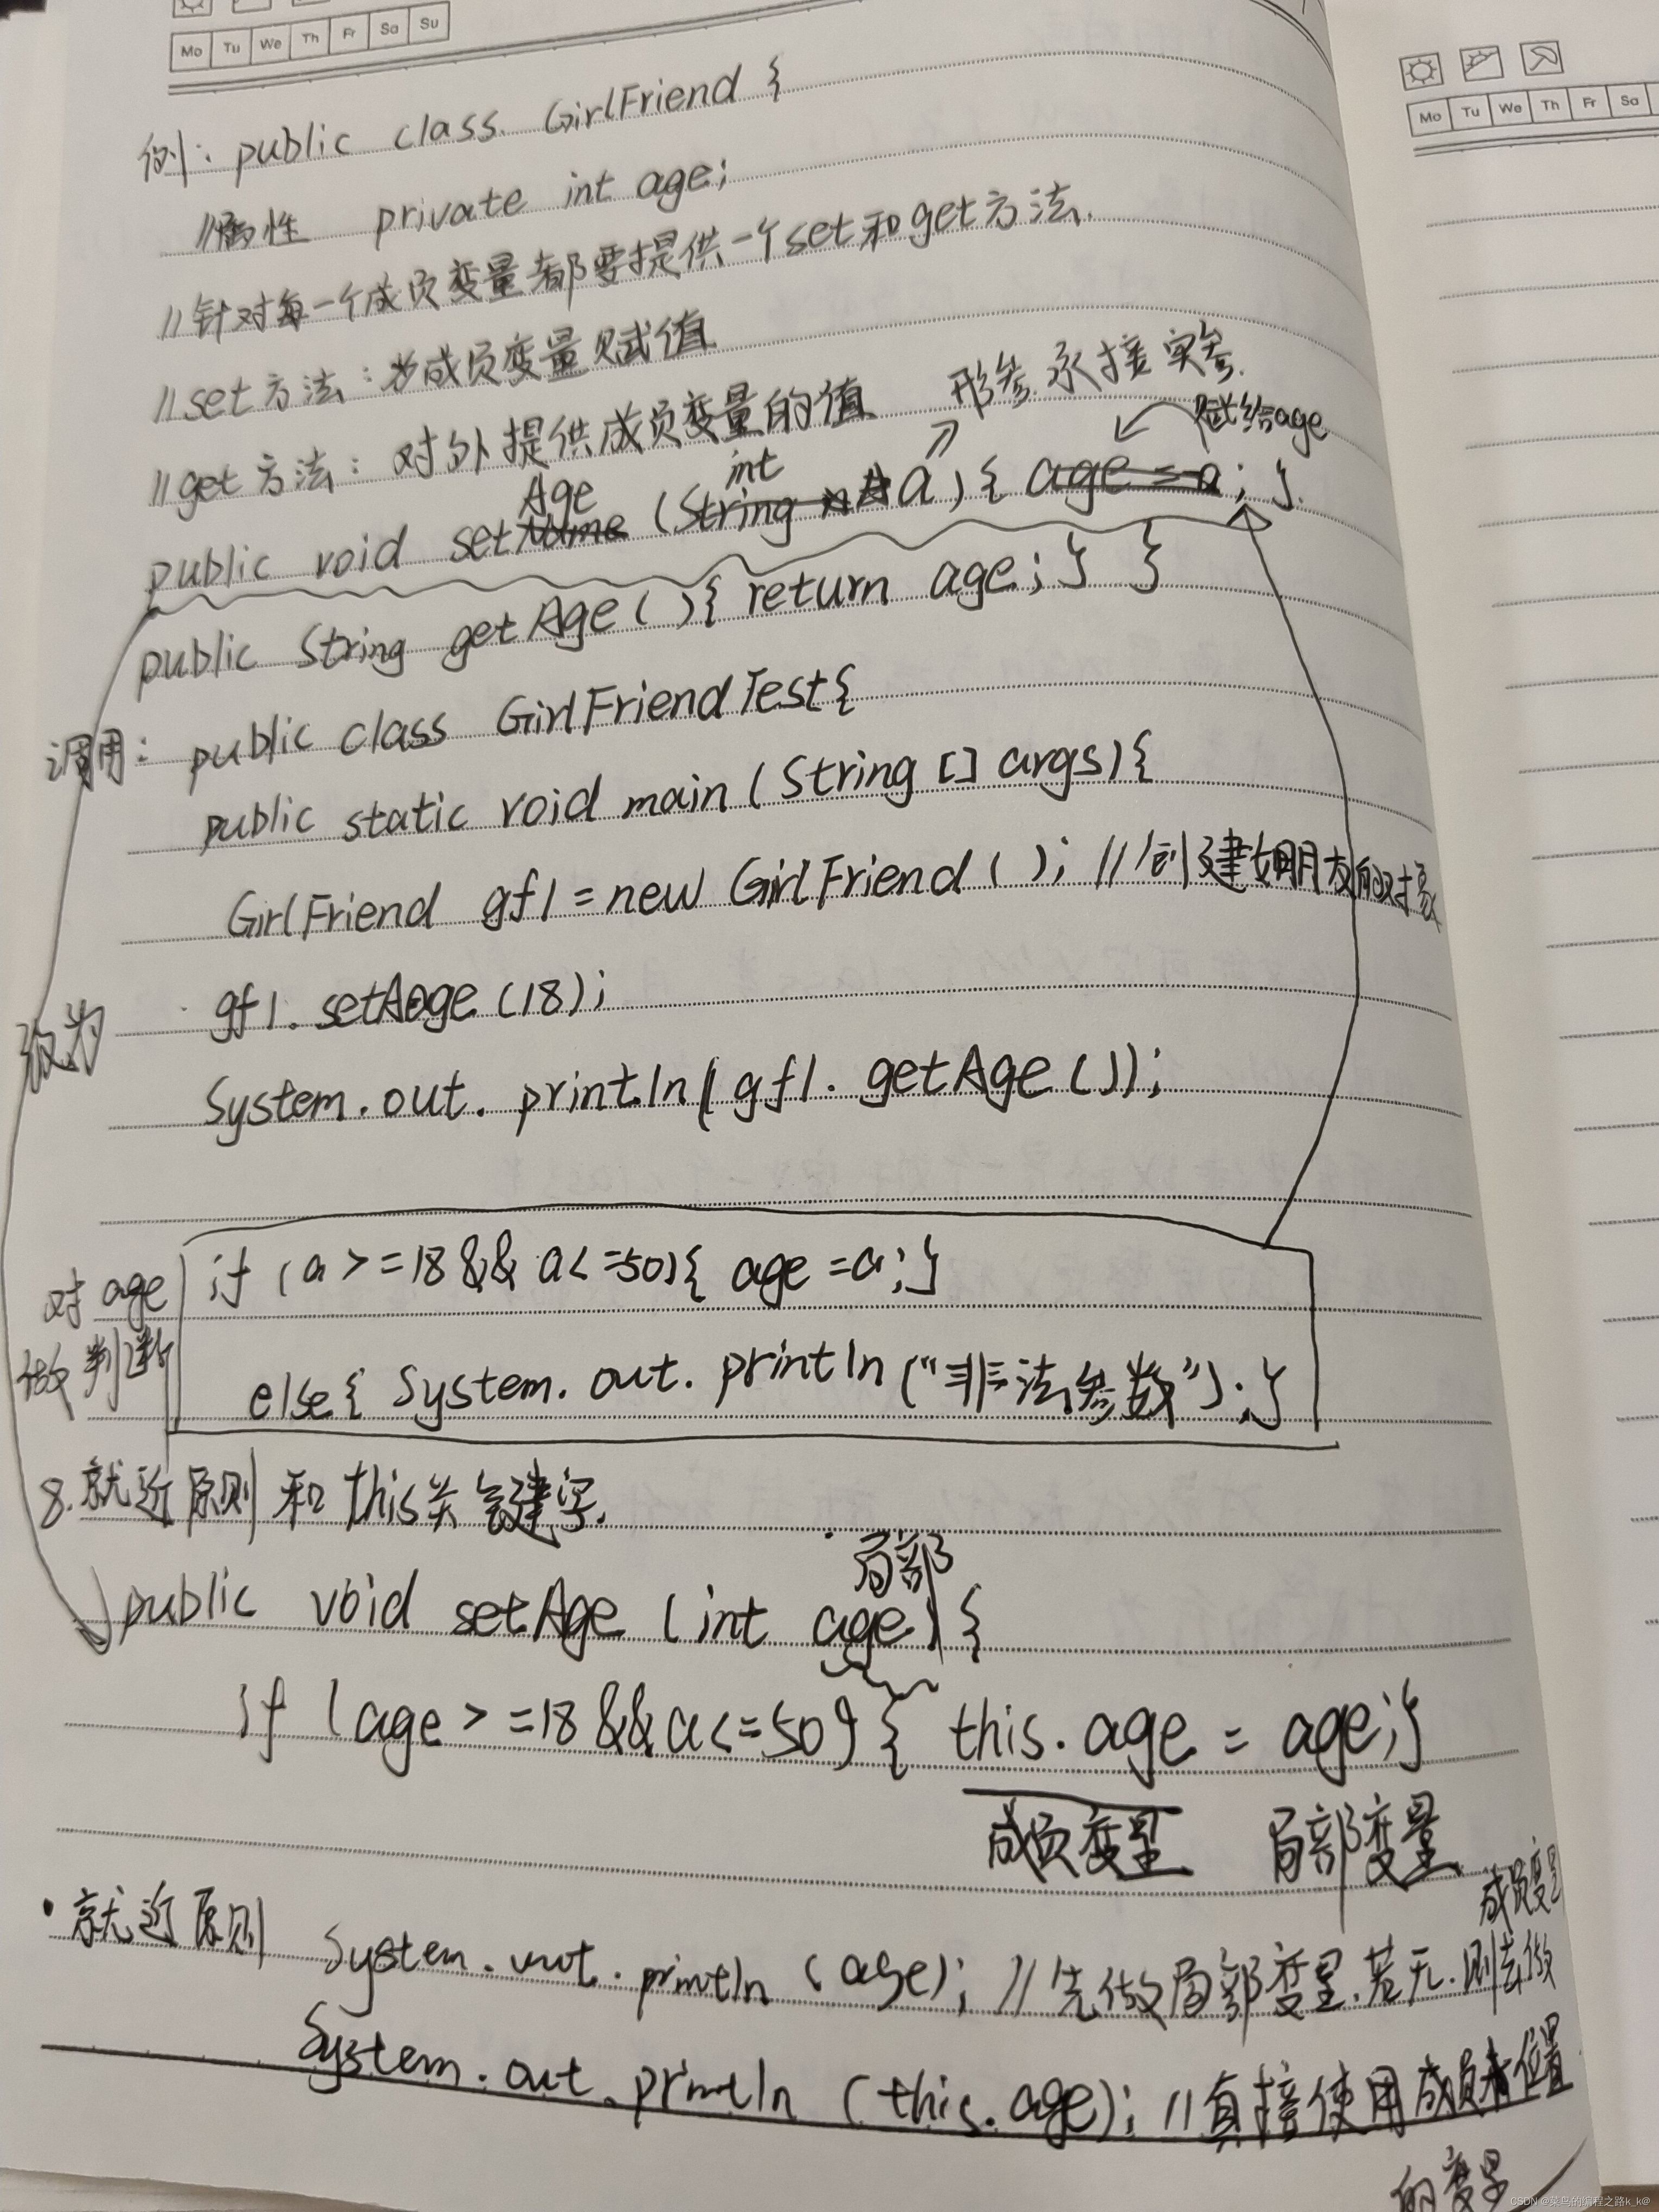 Mo Tu We Th Fr Sa Su
Mo Tu We Th Fr Sa
例: public class GirlFriend {
//属性 private int age;
//针对每一个成员变量都要提供一个set和get方法.
//set方法:为成员变量赋值
//get方法:对外提供成员变量的值 形参承接实参.
赋给age
Age int
public void setName (String a) { age = a; }
public String getAge(){ return age; } }
调用: public class GirlFriendTest{
public static void main (String [] args){
GirlFriend gf1 = new GirlFriend (); //创建女朋友的对象
改为
gf1.setAge(18);
System.out.println(gf1.getAge());
对age做判断
if (a >=18 && a<=50){ age =a;}
else{ System.out.println("非法参数");}
8.就近原则和this关键字.
局部
public void setAge (int age) {
if (age >=18 && a<=50) { this.age = age;}
成员变量 局部变量
成员变量
·就近原则 System.out.println (age); //先做局部变量,若无,则去做
System.out.println (this.age); //直接使用成员位置
的变量
CSDN @菜鸟的编程之路k_k@